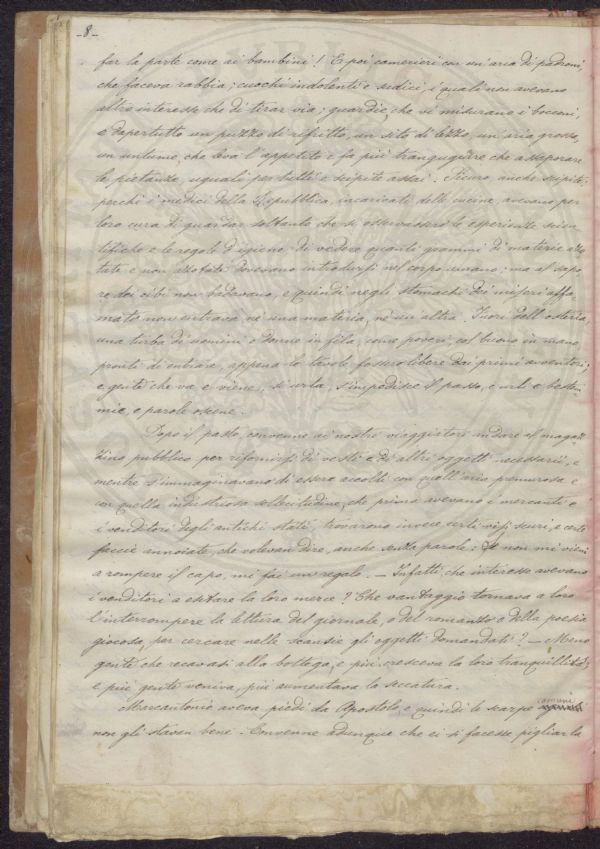 -8-
far la parte come ai bambini! E poi camerieri con un'aria di padroni,
che faceva rabbia; cuochi indolenti e sudici, i quali non avevano
altro interesse che di tirar via; guardie, che vi misurano i bocconi,
e dapertutto un puzzo di rifritto, un sito di lezzo, un'aria grossa,
un untume, che leva l'appetito e fa più trangugiare che assaporare
le pietanze, uguali per tutti e scipite assai. Sicuro, anche scipite;
perchè i medici della Repubblica, incaricati delle cucine, avevano per
loro cura di guardar soltanto che si osservassero le esperienze scien
tifiche e le regole d'igiene, di vedere quanti grammi di materie azo
tate e non azotate dovessero introdursi nel corpo umano; ma al sapo
re dei cibi non badavano, e quindi negli stomachi dei miseri affa
mati non entrava nè una materia, nè un'altra. Fuori dell'osteria,
una turba di uomini e donne in fila, come poveri, col buono in mano,
pronti di entrare, appena le tavole fossero libere dai primi avventori;
e gente che va e viene, si urta, s'impedisce il passo, e urli e beste
mie, e parole oscene.
Dopo il pasto, convenne ai nostri viaggiatori andare al magaz
zino pubblico per rifornirsi di vesti e di altri oggetti necessarii, e
mentre s'immaginavano di essere accolti con quell'aria premurosa e
con quella industriosa sollecitudine, che prima avevano i mercanti e
i venditori degli antichi stati, trovarono invece certi visi scuri, e certe
faccie annoiate, che volevan dire, anche senza parole: Se non mi vieni
a rompere il capo, mi fai un regalo. — Infatti, che interesse avevano
i venditori a esitare la loro merce? Che vantaggio tornava a loro
l'interrompere la lettura del giornale, o del romanzo o della poesia
giocosa, per cercare nelle scansie gli oggetti domandati? — Meno
gente che recavasi alla bottega, e più cresceva la loro tranquillità;
e più gente veniva, più aumentava la seccatura.
Marcantonio aveva piedi da Apostolo, e quindi le scarpe comuni
non gli stavan bene. Convenne adunque che ei si facesse pigliar la